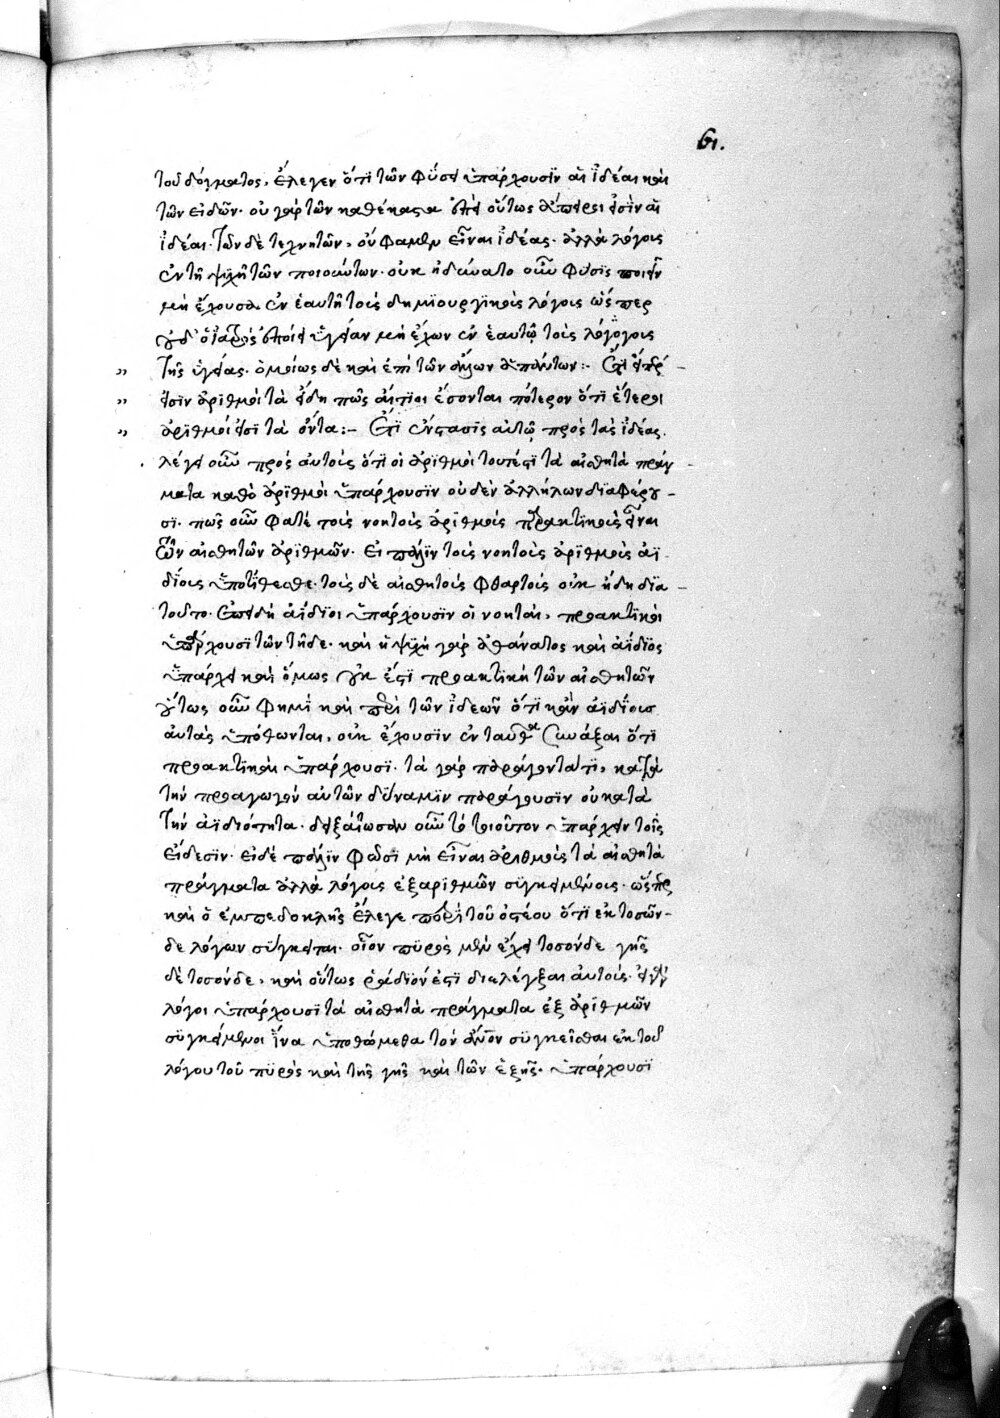 61.
τοῦ δόγματος, ἔλεγεν ὅτι τῶν φύσει ὑπάρχουσιν αἱ ἰδέαι καὶ
τῶν εἰδῶν. οὐ γὰρ τῶν καθέκαστα οὕτως ἄπειροι εἰσὶν αἱ
ἰδέαι. τῶν δὲ τεχνητῶν, οὔ φαμεν εἶναι ἰδέας. ἀλλὰ λόγοις
ἐν τῇ ψυχῇ τῶν ποιούντων. οὐκ ἠδύνατο οὖν φύσις ποιεῖν
μὴ ἔχουσα ἐν ἑαυτῇ τοὺς δημιουργικοὺς λόγοις ὥσπερ
οὐδ' ὁ ἰατρὸς ποιεῖ ὑγείαν μὴ ἔχων ἐν ἑαυτῷ τοὺς λόγοις
τῆς ὑγείας. ὁμοίως δὲ καὶ ἐπὶ τῶν ἄλλων ἁπάντων:- Ἔτι εἴπερ
εἰσὶν ἀριθμοὶ τὰ εἴδη πῶς αἴτιοι ἔσονται πότερον ὅτι ἕτεροι
ἀριθμοί εἰσι τὰ ὄντα:- Ἔτι ἔνστασις αὐτῷ πρὸς τὰς ἰδέας.
λέγει οὖν πρὸς αὐτοὺς ὅτι οἱ ἀριθμοὶ τουτέστι τὰ αἰσθητὰ πράγ-
ματα καθὸ ἀριθμοὶ ὑπάρχουσιν οὐδὲν ἀλλήλων διαφέρου-
σι. πῶς οὖν φατὲ τοὺς νοητοὺς ἀριθμοὺς πρακτικοὺς εἶναι
τῶν αἰσθητῶν ἀριθμῶν. Εἰ πάλιν τοὺς νοητοὺς ἀριθμοὺς ἀϊ-
δίοις ὑποτίθεσθε. τοὺς δὲ αἰσθητοὺς φθαρτοὺς οὐκ ἤδη δια
τοῦτο. ἐπειδὴ ἀΐδιοι ὑπάρχουσιν οἱ νοητοὶ, πρακτικοὶ
ὑπάρχουσι τῶν τῇδε. καὶ ἡ ψυχὴ γὰρ ἀθάνατος καὶ ἀΐδιος
ὑπάρχει καὶ ὅμως οὐκ ἔστι πρακτικὴ τῶν αἰσθητῶν
οὕτως οὖν φημὶ καὶ περὶ τῶν ἰδεῶν ὅτι κἂν ἀϊδίοις
αὐτὰς ὑπόθωνται, οὐκ ἔχουσιν ἐνταῦθα συνάξαι ὅτι
πρακτικαὶ ὑπάρχουσι. τὰ γὰρ παράγοντά τι, κατὰ
τὴν πραγωγὸν αὐτῶν δύναμιν παράγουσιν οὐ κατὰ
τὴν ἀϊδιότητα. δειξάτωσαν οὖν τὸ τοιοῦτον ὑπάρχειν τοῖς
εἴδεσιν. εἰ δὲ πάλιν φασὶ μὴ εἶναι ἀριθμοὺς τὰ αἰσθητὰ
πράγματα ἀλλὰ λόγοις ἐξ ἀριθμῶν συγκειμένοις. ὥσπερ
καὶ ὁ ἐμπεδοκλῆς ἔλεγε περὶ τοῦ ὀστέου ὅτι ἐκ τοσῶν-
δε λόγων σύγκειται. οἷον πυρὸς μὲν ἔχει τοσόνδε γῆς
δὲ τοσόνδε, καὶ οὕτως ῥάδιόν ἐστι διελέγξαι αὐτούς.
λόγοι ὑπάρχουσι τὰ αἰσθητὰ πράγματα ἐξ ἀριθμῶν
συγκείμενοι ἵνα ὑποθώμεθα τὸν ἄνθρωπον συγκεῖσθαι ἐκ τοῦ
λόγου τοῦ πυρὸς καὶ τῆς γῆς καὶ τῶν ἑξῆς. ὑπάρχουσι